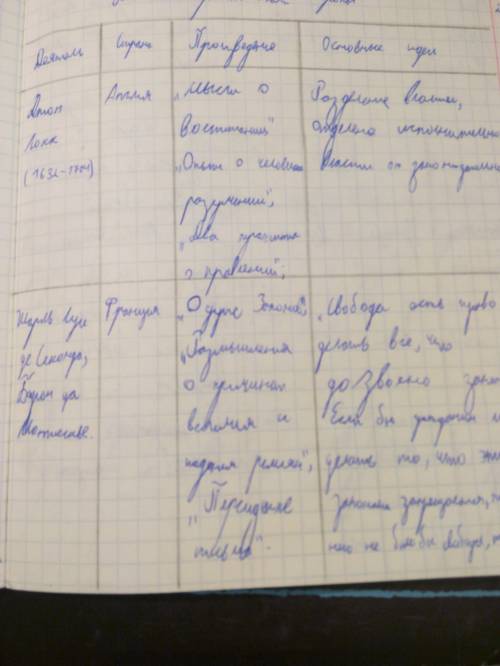 Деятель Страна Произведение Основные идеи
Джон Локк (1632-1704)
Англия
„Мысли о
воспитании"
„Опыт о человеч
разумении",
„Два трактата
о правлении",
Разделение власти,
отделено исполнительно
власти от законодательно
Шарль Луи
де Секонда,
Барон де
Монтескье.
Франция
„О духе Законов",
„Размышления
о причинах
величия и
падения римлян",
„Персидские
письма".
„Свобода есть право
делать все, что
дозволено зако
Если бы гражданин м
делать то, что эти
законами запрещается, то
него не было бы свободы, т